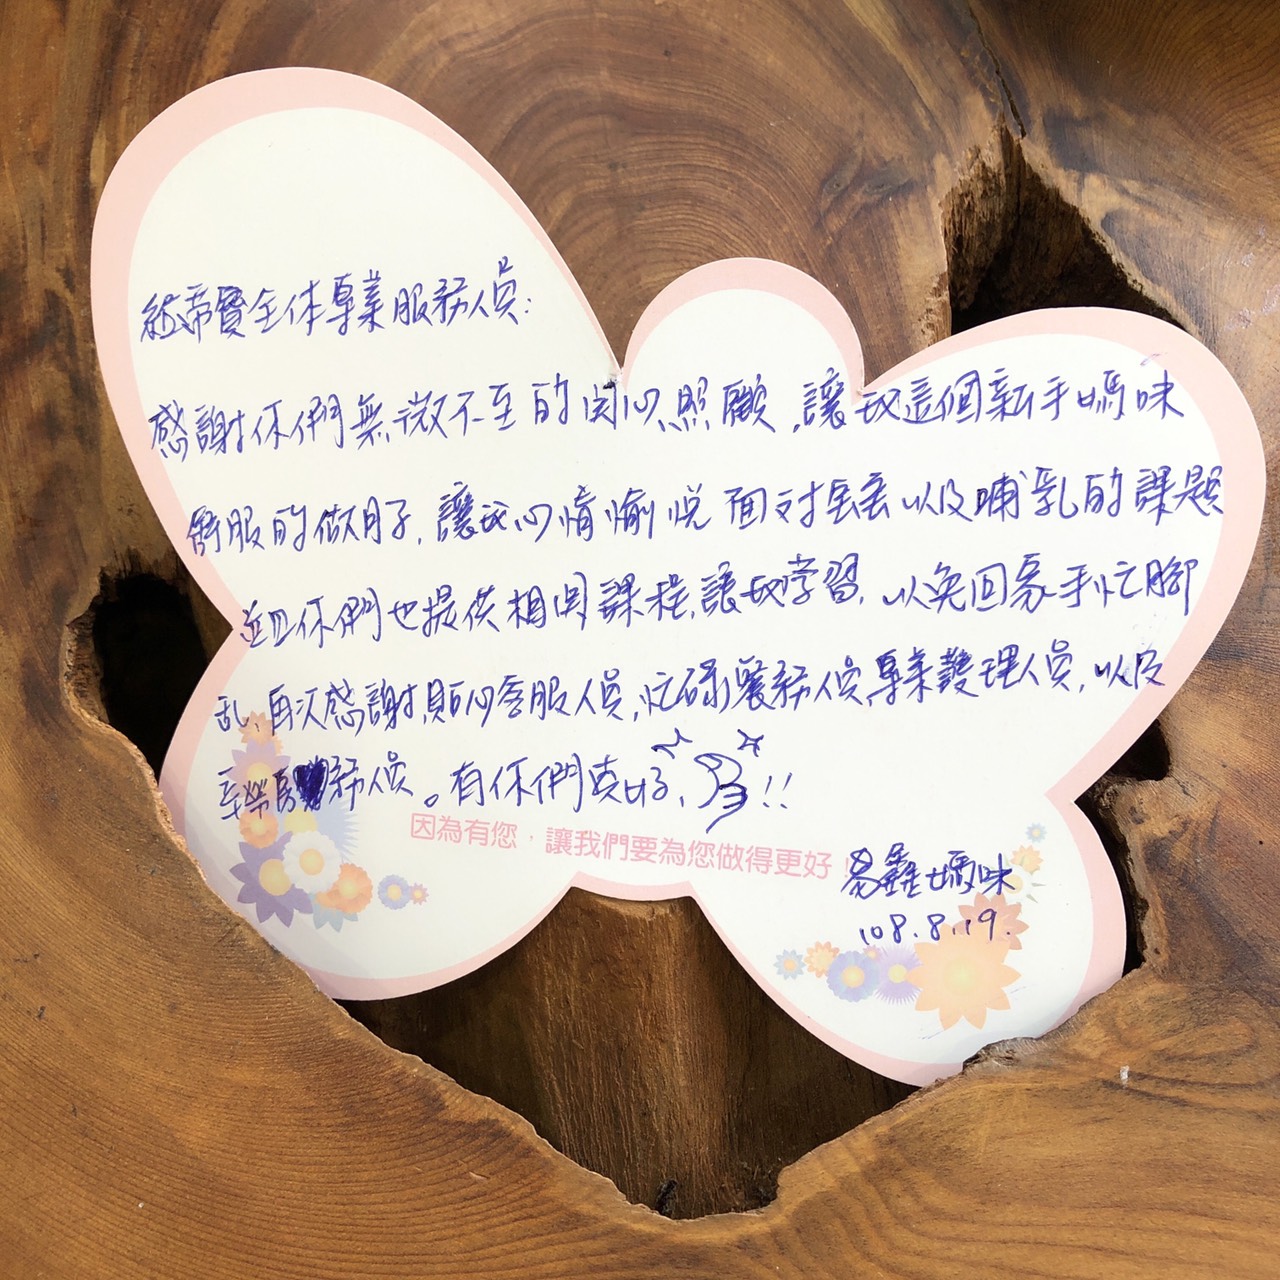 結帝寶全体專業服務人員:
感謝你們無微不至的関心照顧,讓我這個新手媽咪
舒服的做月子,讓我心情愉悅面对丟丟以及哺乳的課題
並且你們也提供相関課程,讓我学習,以免回家手忙腳
乱,再次感謝,貼心客服人員,忙碌醫務人員,專業護理人員,以及
辛勞房務人員。有你們真好,!!
因為有您,讓我們要為您做得更好!
易鑫媽咪
108.8.19.